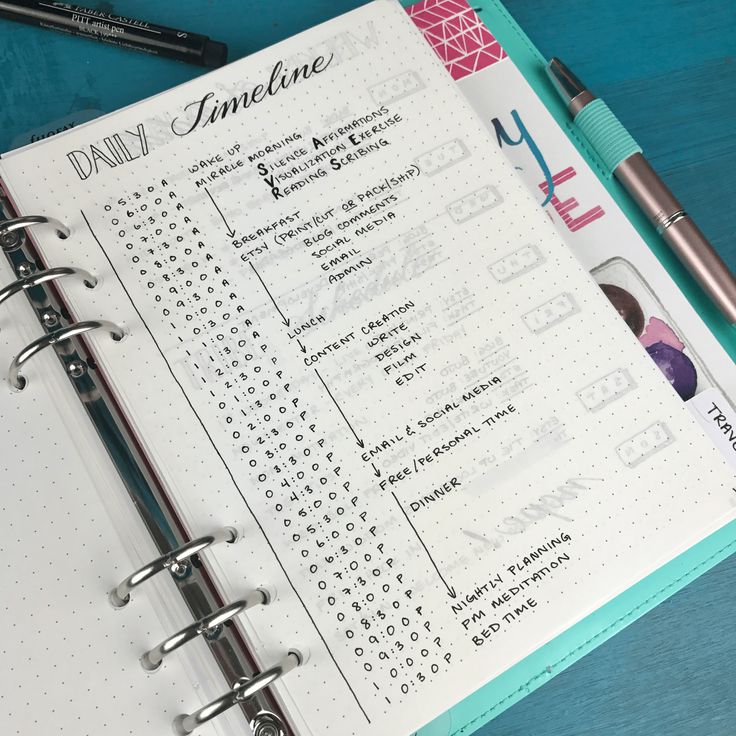 FABER CASTELL
PITT artist pen
S
DAILY Timeline
05:30A
06:00A
06:30A
07:00A
07:30A
08:00A
08:30A
09:00A
09:30A
10:00A
10:30A
11:00A
11:30A
12:00P
12:30P
01:00P
01:30P
02:00P
02:30P
03:00P
03:30P
04:00P
04:30P
05:00P
05:30P
06:00P
06:30P
07:00P
07:30P
08:00P
08:30P
09:00P
09:30P
10:00P
10:30P
WAKE UP
MIRACLE MORNING
SILENCE AFFIRMATIONS
VISUALIZATION EXERCISE
READING SCRIBING
BREAKFAST
ETSY (PRINT/CUT OR PACK/SHIP)
BLOG COMMENTS
SOCIAL MEDIA
EMAIL
ADMIN
LUNCH
CONTENT CREATION
WRITE
DESIGN
FILM
EDIT
EMAIL & SOCIAL MEDIA
FREE/PERSONAL TIME
DINNER
NIGHTLY PLANNING
PM MEDITATION
BED TIME